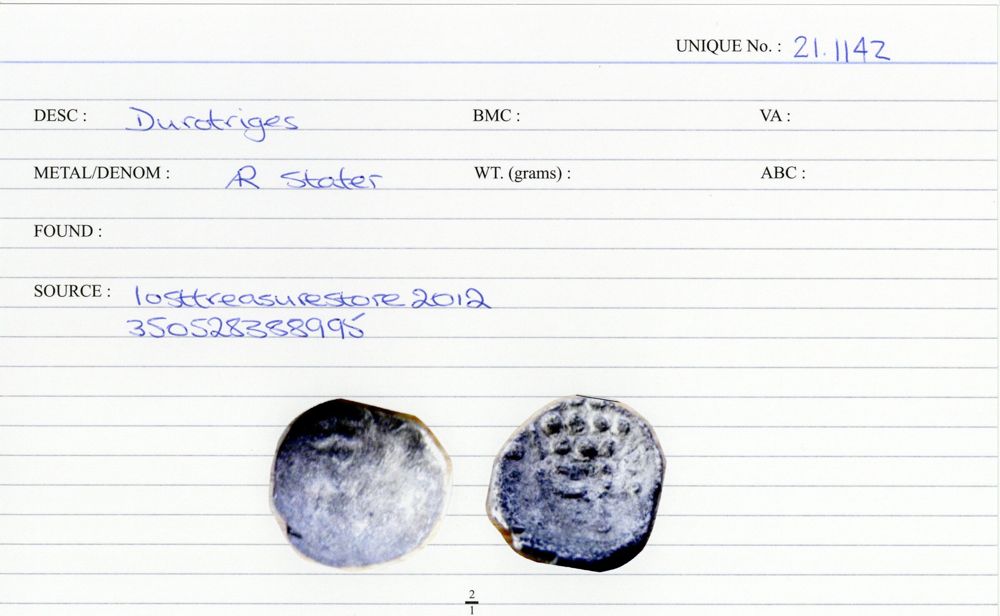 UNIQUE No. : 21.1142
DESC : Durotriges BMC : VA :
METAL/DENOM : AR Stater WT. (grams) : ABC :
FOUND :
SOURCE : losttreasurestore2012
350528388995
2
1